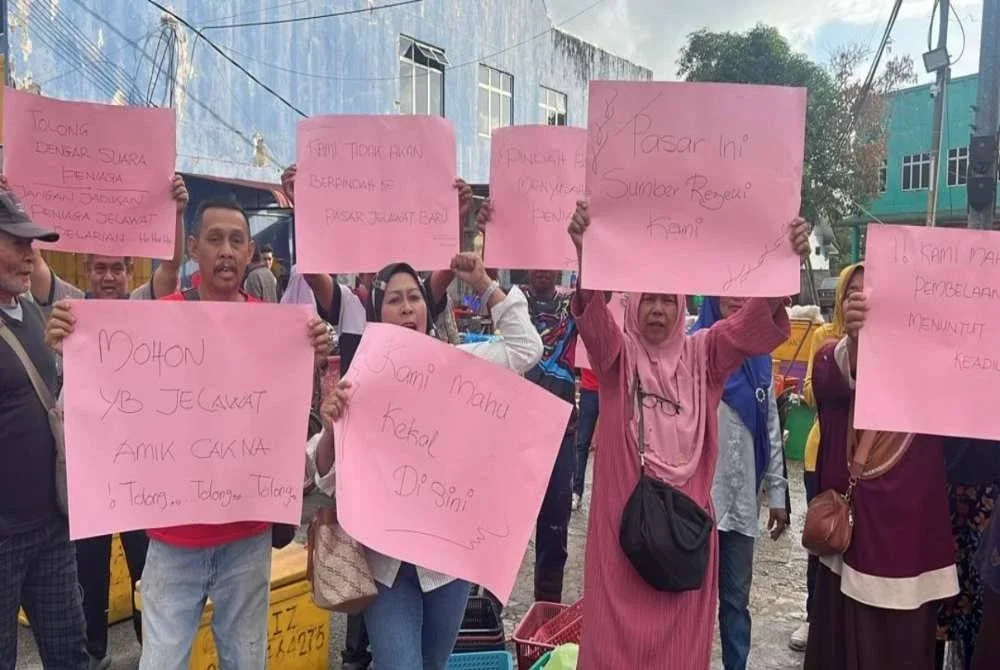 TOLONG
DENGAR SUARA
PENIAGA
JANGAN JADIKAN
PENIAGA JELAWAT
PELARIAN
KAMI TIDAK AKAN
BERPINDAH KE
PASAR JELAWAT BARU
PINDAH
Pasar Ini
Sumber Rezeki
Kami
!! KAMI MAH
PEMBELAAN
MENUNTUT
KEADIL
MOHON
YB JELAWAT
AMIK CAKNA
! Tolong... Tolong... Tolong...
Kami Mahu
Kekal
Disini
4275